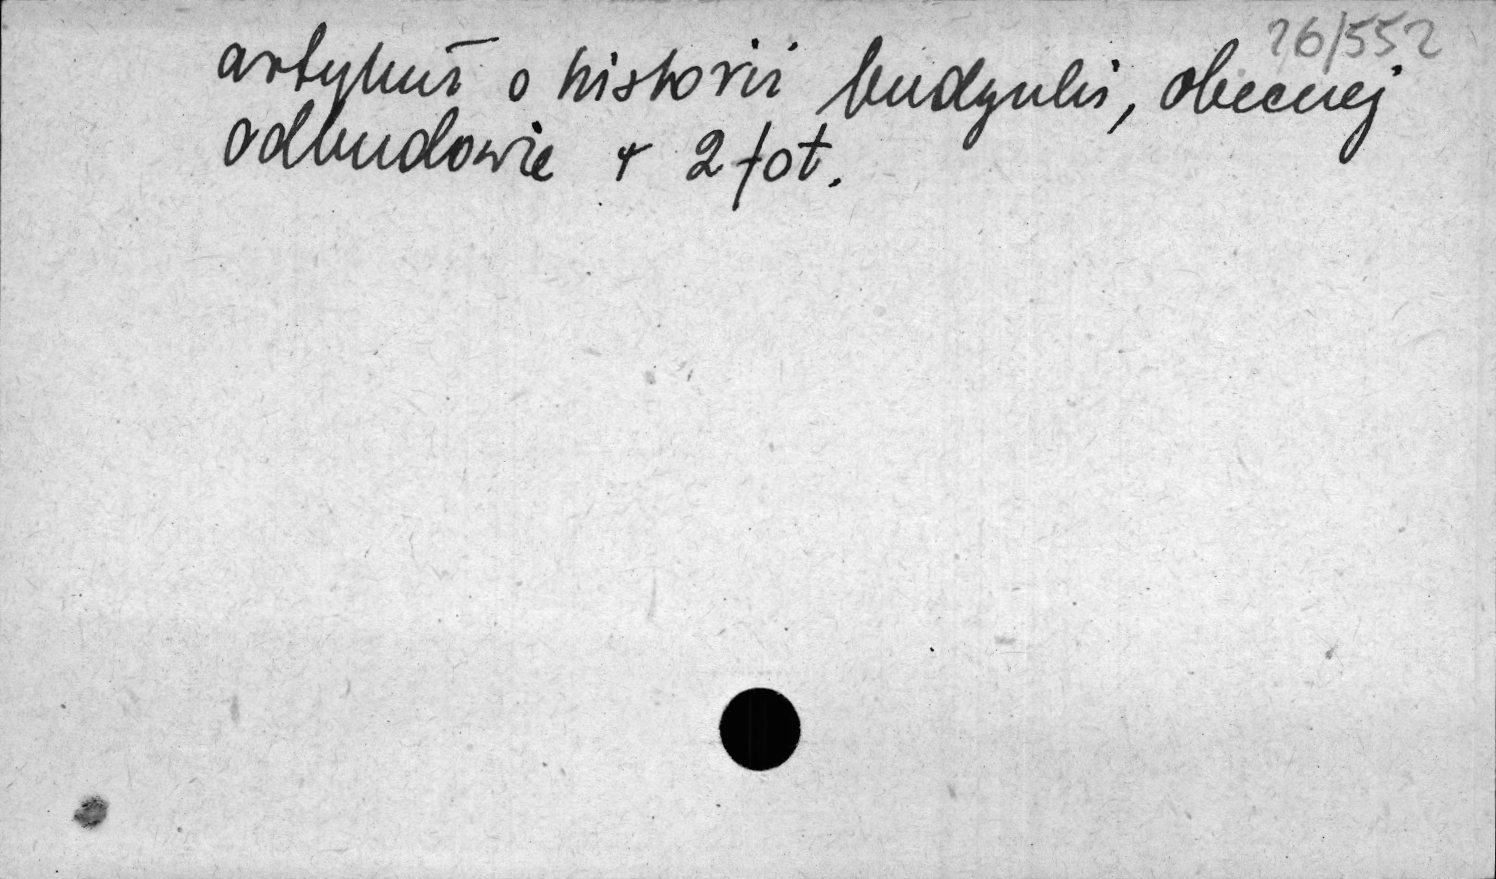 26/552
artykuł o historii budynku, obecnej
odbudowie + 2 fot.